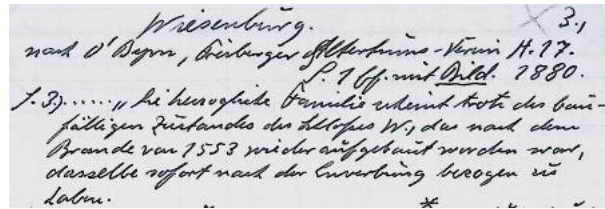 Wiesenburg. 3.,
nach O'Byrn, Freiberger Altertums-Verein H. 17.
S. 1 ff. mit Bild. 1880.
S. 3,)..... „Die herzogliche Familie scheint trotz des bau-
fälligen Zustandes des Schloßes W., das nach dem
Brande von 1553 wieder aufgebaut worden war,
dasselbe sofort nach der Erwerbung bezogen zu
haben.